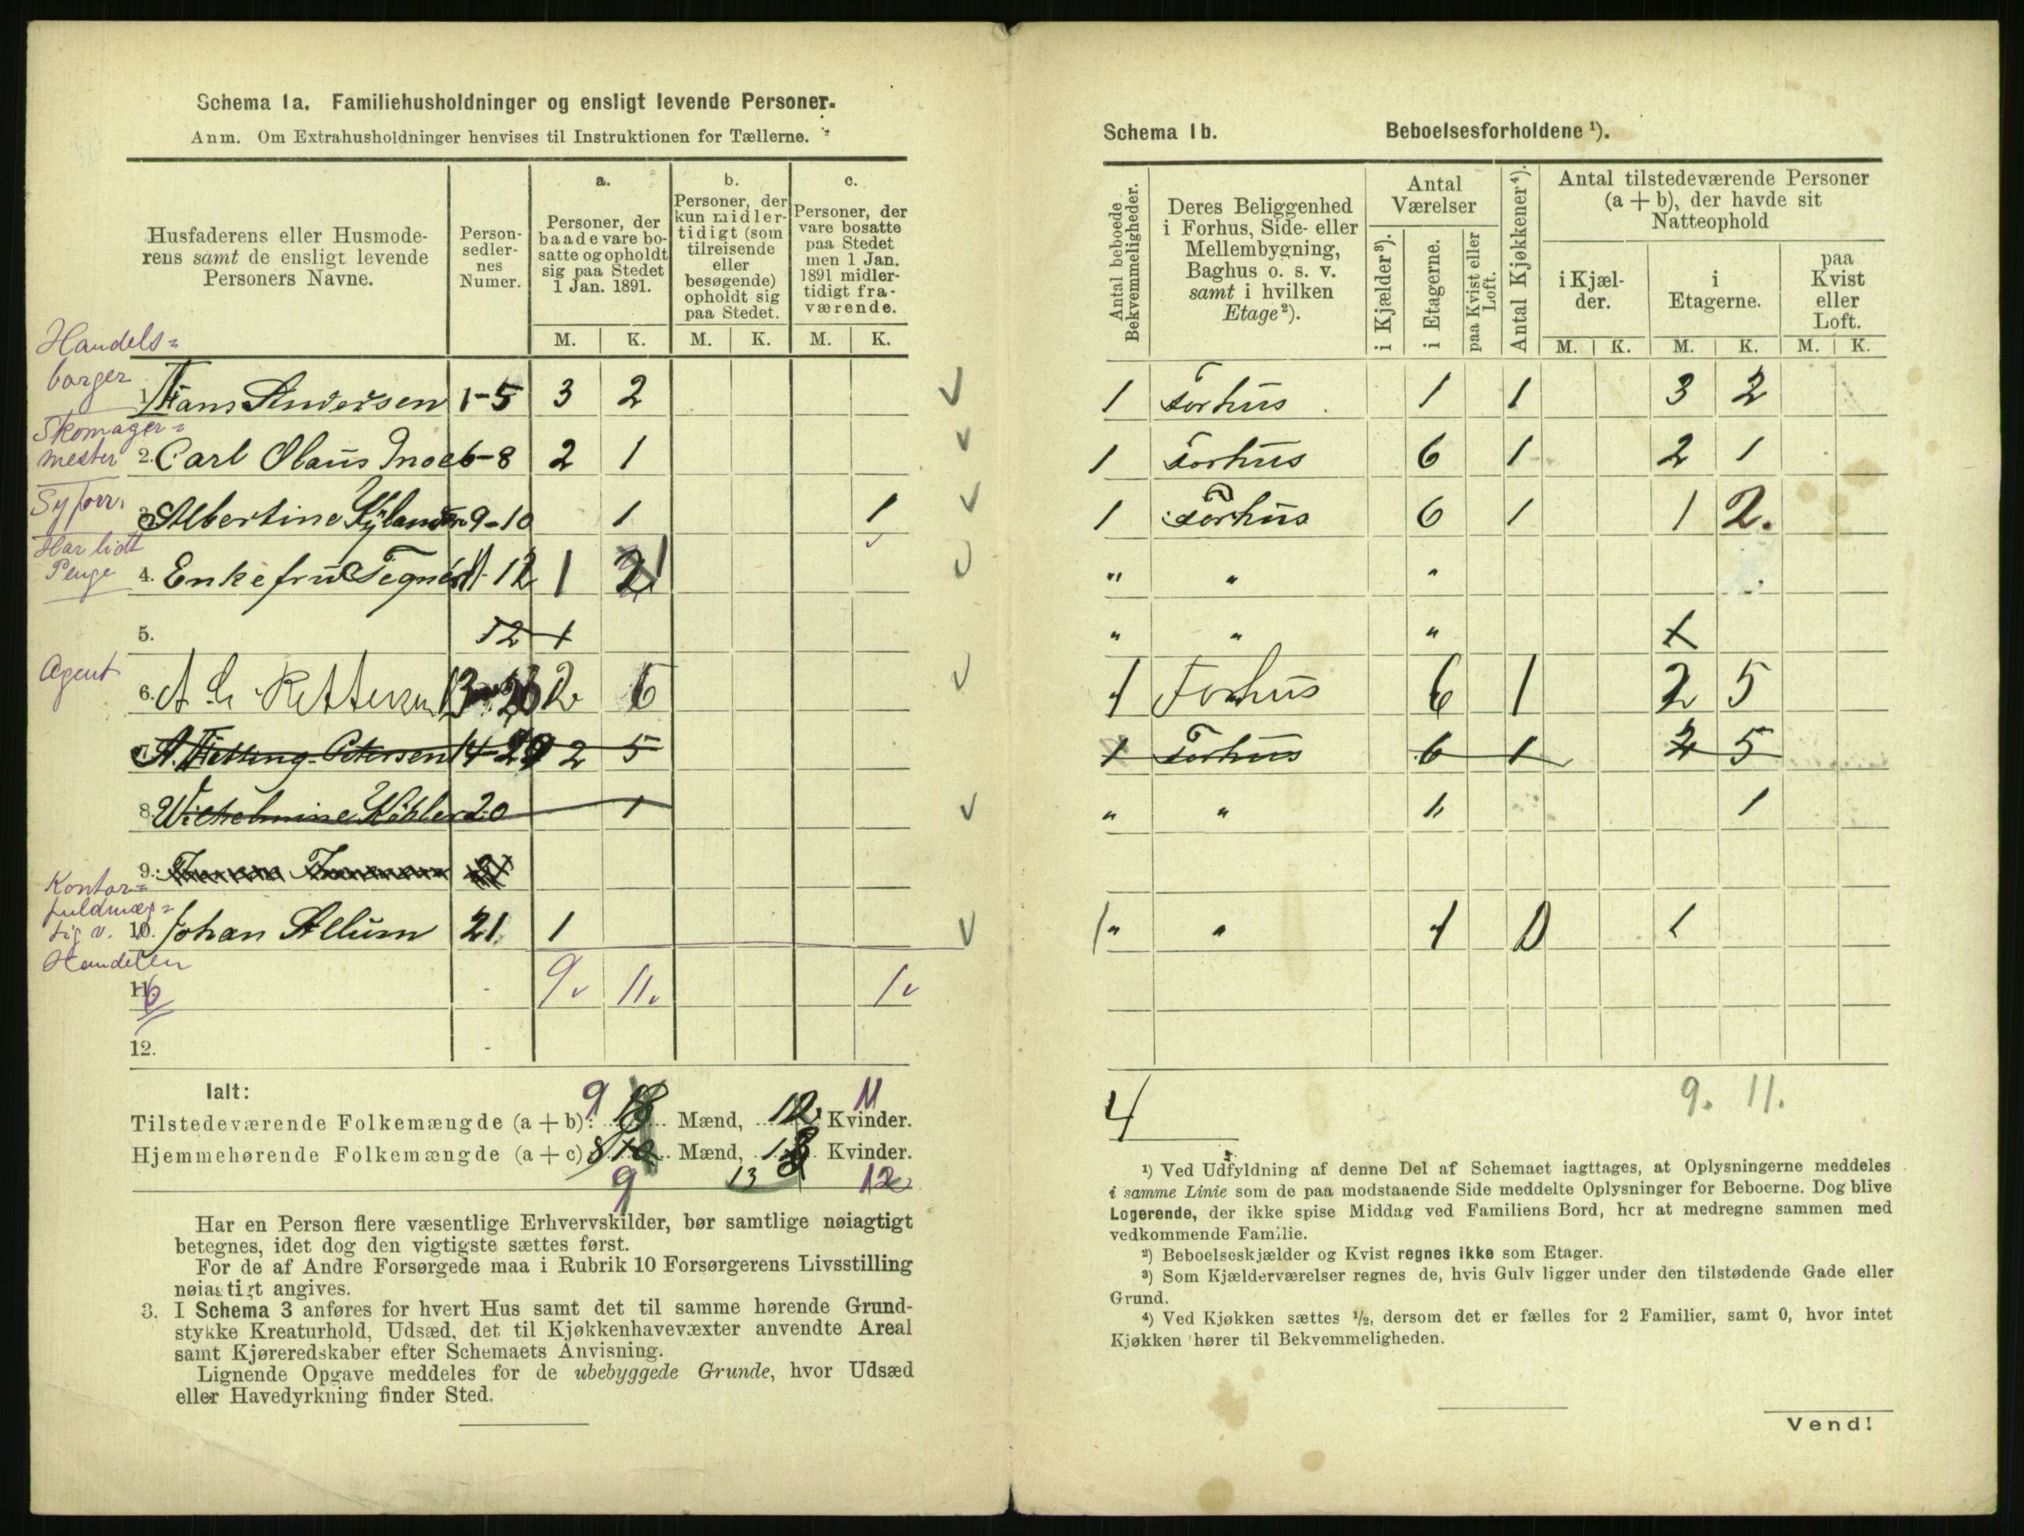 Schema 1a. Familiehusholdninger og ensligt levende Personer.
Anm. Om Extrahusholdninger henvises til Instruktionen for Tællerne.
Husfaderens eller Husmode-
rens samt de ensligt levende
Personers Navne.
Person-
sedler-
nes
Numer.
a.
Personer, der
baade vare bo-
satte og opholdt
sig paa Stedet
1 Jan. 1891.
b.
Personer, der
kun midler-
tidigt (som
tilreisende
eller
besøgende)
opholdt sig
paa Stedet.
c.
Personer, der
vare bosatte
paa Stedet
men 1 Jan.
1891 midler-
tidigt fra-
værende.
M. K. M. K. M. K.
Handels=
borger
1. Hans Andersen 1-5 3 2
Skomager=
mester
2. Carl Olaus Moe 6-8 2 1
Syforr.
3. Albertine Kylander 9-10 1 1
Har lidt
Penge
4. Enkefru Tegnér 11-12 1 2 1
5. 12 1
Agent
6. 13 2
7. A. Petersen 14 2 5
8. Wilhelmine Köhler 20 1
9.
Kontor=
fuldmæg=
tig v.
Handelen
10. Johan Allum 21 1
11. 6 9 11 1
12.
Ialt:
Tilstedeværende Folkemængde (a + b): 9 Mænd, 12 11 Kvinder.
Hjemmehørende Folkemængde (a + c) 8 Mænd, Kvinder.
9 13 12
Har en Person flere væsentlige Erhvervskilder, bør samtlige nøiagtigt
betegnes, idet dog den vigtigste sættes først.
For de af Andre Forsørgede maa i Rubrik 10 Forsørgerens Livsstilling
nøiagtigt angives.
3. I Schema 3 anføres for hvert Hus samt det til samme hørende Grund-
stykke Kreaturhold, Udsæd, det til Kjøkkenhavevæxter anvendte Areal
samt Kjøreredskaber efter Schemaets Anvisning.
Lignende Opgave meddeles for de ubebyggede Grunde, hvor Udsæd
eller Havedyrkning finder Sted.
Schema 1b. Beboelsesforholdene ¹).
Antal beboede
Bekvemmeligheder.
Deres Beliggenhed
i Forhus, Side- eller
Mellembygning,
Baghus o. s. v.
samt i hvilken
Etage²).
Antal
Værelser
i Kjælder³).
i Etagerne.
paa Kvist eller
Loft.
Antal Kjøkkener⁴).
Antal tilstedeværende Personer
(a + b), der havde sit
Natteophold
i Kjæl-
der.
i
Etagerne.
paa
Kvist
eller
Loft.
M. K. M. K. M. K.
1 Forhus 1 1 3 2
1 Forhus 6 1 2 1
1 Forhus 6 1 1 2.
" " "
" " " 1
1 Forhus 6 1 2 5
1 Forhus 6 1 2 5
" " 1 1
1 " " 1 0 1
4 9. 11.
¹) Ved Udfyldning af denne Del af Schemaet iagttages, at Oplysningerne meddeles
i samme Linie som de paa modstaaende Side meddelte Oplysninger for Beboerne. Dog blive
Logerende, der ikke spise Middag ved Familiens Bord, her at medregne sammen med
vedkommende Familie.
²) Beboelseskjælder og Kvist regnes ikke som Etager.
³) Som Kjælderværelser regnes de, hvis Gulv ligger under den tilstødende Gade eller
Grund.
⁴) Ved Kjøkken sættes ½, dersom det er fælles for 2 Familier, samt 0, hvor intet
Kjøkken hører til Bekvemmeligheden.
Vend!